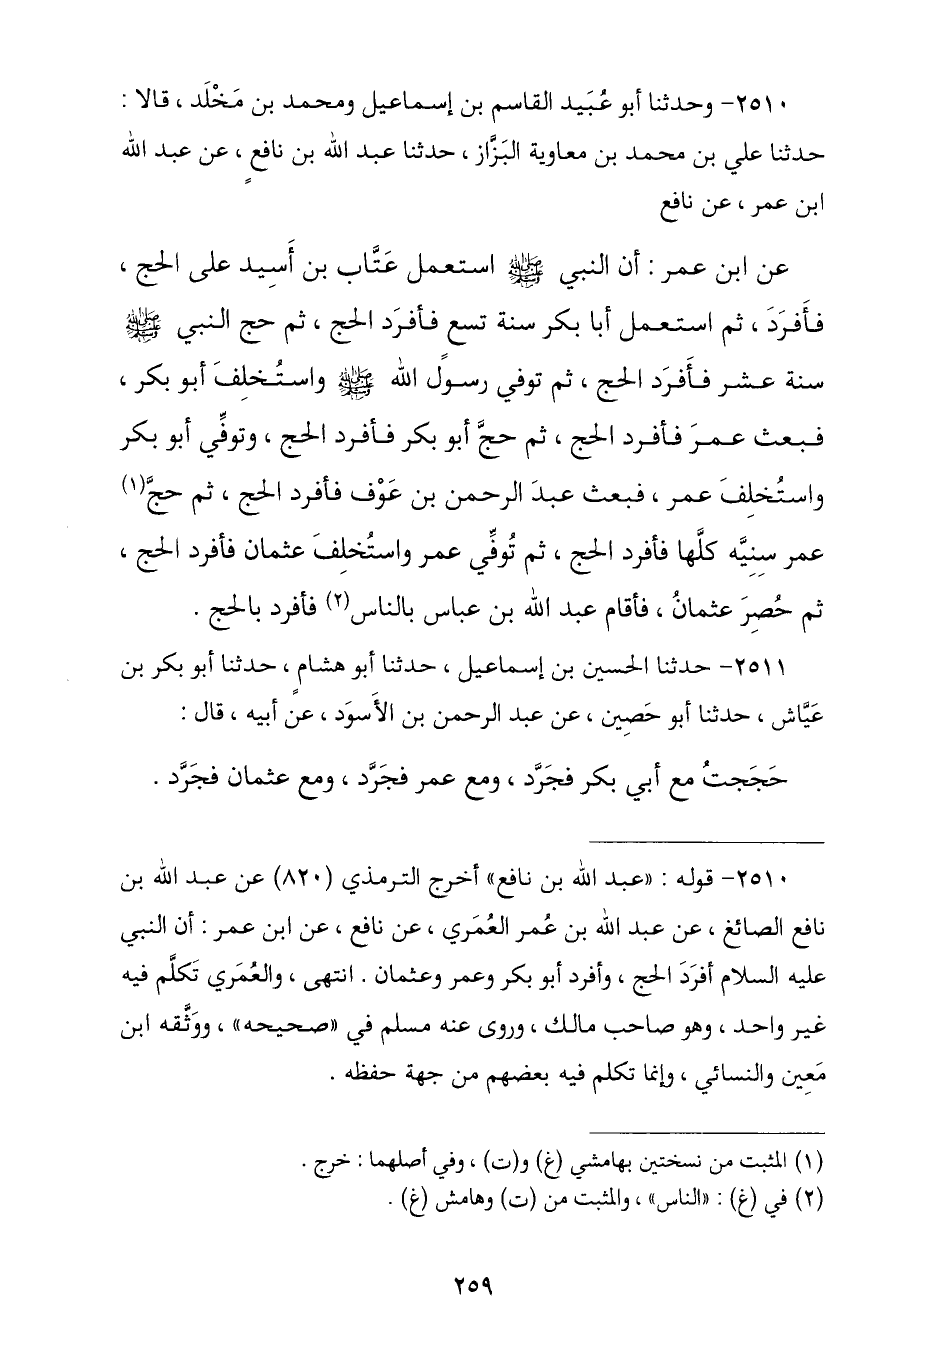 ٢٥١٠- وحدثنا أبو عُبَيد القاسم بن إسماعيل ومحمد بن مَخْلَد ، قالا :
حدثنا علي بن محمد بن معاوية البَزَّاز ، حدثنا عبد الله بن نافعٍ ، عن عبد الله
ابن عمر ، عن نافع
عن ابن عمر : أن النبي ﷺ استعمل عَتَّاب بن أَسِيد على الحج ،
فأَفرَدَ ، ثم استعمل أبا بكر سنة تسع فأفرَد الحج ، ثم حج النبي ﷺ
سنة عشر فأَفرَد الحج ، ثم توفي رسولُ الله ﷺ واستُخلِفَ أبو بكر ،
فبعث عمرَ فأفرد الحج ، ثم حجَّ أبو بكر فأفرد الحج ، وتوفِّي أبو بكر
واستُخلِفَ عمر ، فبعث عبدَ الرحمن بن عَوْف فأفرد الحج ، ثم حجَّ(١)
عمر سِنِيَّه كلَّها فأفرد الحج ، ثم تُوفِّي عمر واستُخلِفَ عثمان فأفرد الحج ،
ثم حُصِرَ عثمانُ ، فأقام عبد الله بن عباس بالناس(٢) فأفرد بالحج .
٢٥١١- حدثنا الحسين بن إسماعيل ، حدثنا أبو هشامٍ ، حدثنا أبو بكر بن
عَيَّاش ، حدثنا أبو حَصِين ، عن عبد الرحمن بن الأَسوَد ، عن أبيه ، قال :
حَجَجتُ مع أبي بكر فجَرَّد ، ومع عمر فجَرَّد ، ومع عثمان فجَرَّد .
٢٥١٠- قوله : «عبد الله بن نافع» أخرج الترمذي (٨٢٠) عن عبد الله بن
نافع الصائغ ، عن عبد الله بن عُمر العُمَري ، عن نافع ، عن ابن عمر : أن النبي
عليه السلام أفرَدَ الحج ، وأفرد أبو بكر وعمر وعثمان . انتهى ، والعُمَري تَكلَّم فيه
غير واحد ، وهو صاحب مالك ، وروى عنه مسلم في «صحيحه» ، ووَثَّقه ابن
مَعِين والنسائي ، وإنما تكلم فيه بعضهم من جهة حفظه .
(١) المثبت من نسختين بهامشي (غ) و(ت) ، وفي أصلهما : خرج .
(٢) في (غ) : «الناس» ، والمثبت من (ت) وهامش (غ) .
٢٥٩